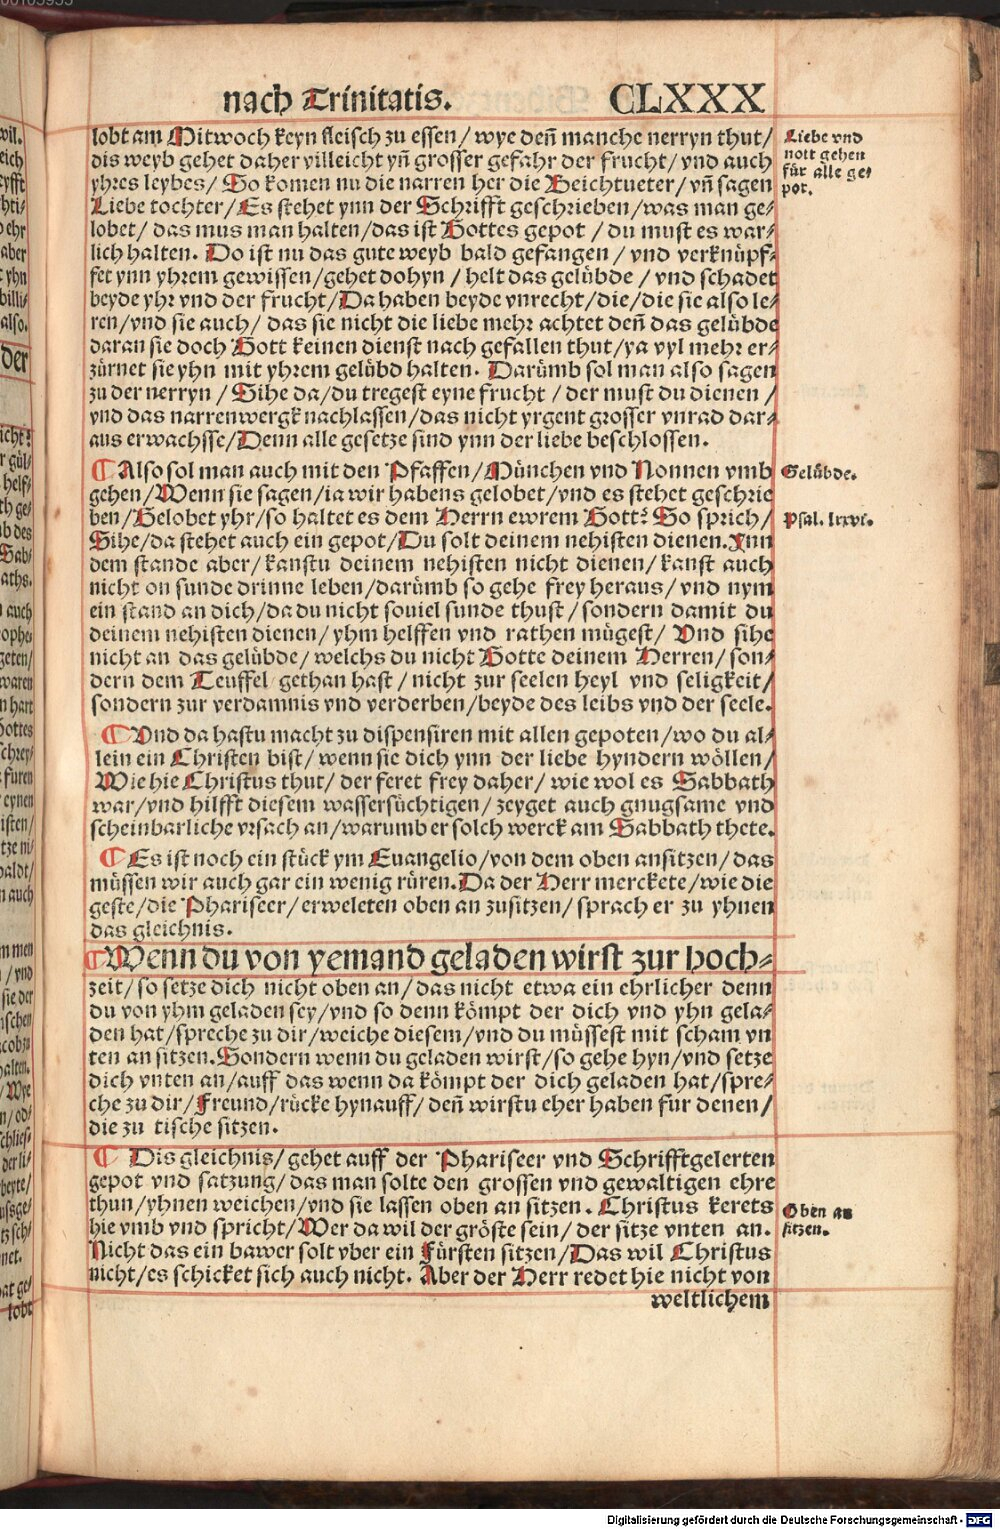 nach Trinitatis. CLXXX
lobt am Mitwoch keyn fleisch zu essen/ wye deñ manche nerryn thut/
dis weyb gehet daher villeicht yñ grosser gefahr der frucht/ vnd auch
yhres leybes/ So komen nu die narren her die Beichtueter/ vñ sagen
Liebe tochter/ Es stehet ynn der Schrifft geschrieben/ was man ge-
lobet/ das mus man halten/ das ist Gottes gepot / du must es war-
lich halten. Do ist nu das gute weyb bald gefangen / vnd verknüpf-
fet ynn yhrem gewissen/ gehet dohyn / helt das gelübde / vnd schadet
beyde yhr vnd der frucht/ Da haben beyde vnrecht/ die/ die sie also le-
ren/ vnd sie auch/ das sie nicht die liebe mehr achtet deñ das gelübde
daran sie doch Gott keinen dienst nach gefallen thut/ ya vyl mehr er-
zürnet sie yhn mit yhrem gelübd halten. Darümb sol man also sagen
zu der nerryn / Sihe da/ du tregest eyne frucht / der must du dienen /
vnd das narrenwergk nachlassen/ das nicht yrgent grosser vnrad dar-
aus erwachsse/ Denn alle gesetze sind ynn der liebe beschlossen.
Liebe vnd
nott gehen
für alle ge-
pot.
¶ Also sol man auch mit den Pfaffen/ München vnd Nonnen vmb
gehen/ Wenn sie sagen/ ia wir habens gelobet/ vnd es stehet geschrie
ben/ Gelobet yhr/ so haltet es dem Herrn ewrem Gott? So sprich/
Sihe/ da stehet auch ein gepot/ Du solt deinem nehisten dienen. Ynn
dem stande aber/ kanstu deinem nehisten nicht dienen/ kanst auch
nicht on sunde drinne leben/ darümb so gehe frey heraus/ vnd nym
ein stand an dich/ da du nicht souiel sunde thust / sondern damit du
deinem nehisten dienen/ yhm helffen vnd rathen mügest/ Vnd sihe
nicht an das gelübde/ welchs du nicht Gotte deinem Herren/ son-
dern dem Teuffel gethan hast / nicht zur seelen heyl vnd seligkeit/
sondern zur verdamnis vnd verderben/ beyde des leibs vnd der seele.
Gelübde.
Psal. lxxvi.
¶ Vnd da hastu macht zu dispensiren mit allen gepoten/ wo du al-
lein ein Christen bist/ wenn sie dich ynn der liebe hyndern wöllen/
Wie hie Christus thut/ der feret frey daher/ wie wol es Sabbath
war/ vnd hilfft diesem wassersüchtigen/ zeyget auch gnugsame vnd
scheinbarliche vrsach an/ warumb er solch werck am Sabbath thete.
¶ Es ist noch ein stück ym Euangelio/ von dem oben ansitzen/ das
müssen wir auch gar ein wenig rüren. Da der Herr merckete/ wie die
geste/ die Phariseer/ erweleten oben an zusitzen/ sprach er zu yhnen
das gleichnis.
¶ Wenn du von yemand geladen wirst zur hoch-
zeit/ so setze dich nicht oben an/ das nicht etwa ein ehrlicher denn
du von yhm geladen sey/ vnd so denn kömpt der dich vnd yhn gela-
den hat/ spreche zu dir/ weiche diesem/ vnd du müssest mit scham vn
ten an sitzen. Sondern wenn du geladen wirst/ so gehe hyn/ vnd setze
dich vnten an/ auff das wenn da kömpt der dich geladen hat/ spre-
che zu dir/ Freund/ rücke hynauff/ deñ wirstu eher haben fur denen/
die zu tische sitzen.
¶ Dis gleichnis/ gehet auff der Phariseer vnd Schrifftgelerten
gepot vnd satzung/ das man solte den grossen vnd gewaltigen ehre
thun/ yhnen weichen/ vnd sie lassen oben an sitzen. Christus kerets
hie vmb vnd spricht/ Wer da wil der gröste sein/ der sitze vnten an.
Nicht das ein bawer solt vber ein Fürsten sitzen/ Das wil Christus
nicht/ es schicket sich auch nicht. Aber der Herr redet hie nicht von
weltlichem
Oben an
sitzen.
Digitalisierung gefördert durch die Deutsche Forschungsgemeinschaft - DFG